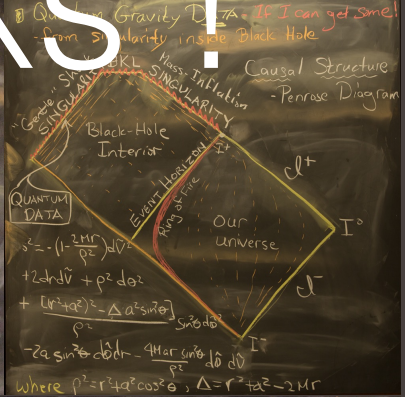 AS!
Quantum Gravity DATA - If I can get some!
- from singularity inside Black Hole
Causal Structure
- Penrose Diagram
"Gentle" SINGULARITY
BKL
Mass-Inflation SINGULARITY
Black-Hole
Interior
I+
EVENT HORIZON
Ring of Fire
QUANTUM
DATA
Our
universe
I⁰
I⁻
= -(1-2Mr/ρ²)dṽ²
+2drdṽ + ρ²dθ²
+ [(r²+a²)²-Δa²sin²θ]/ρ² sin²θdφ̃²
-2a sin²θ dφ̃dr - 4Mar sin²θ/ρ² dφ̃ dṽ
where ρ²=r²+a²cos²θ, Δ=r²+a²-2Mr